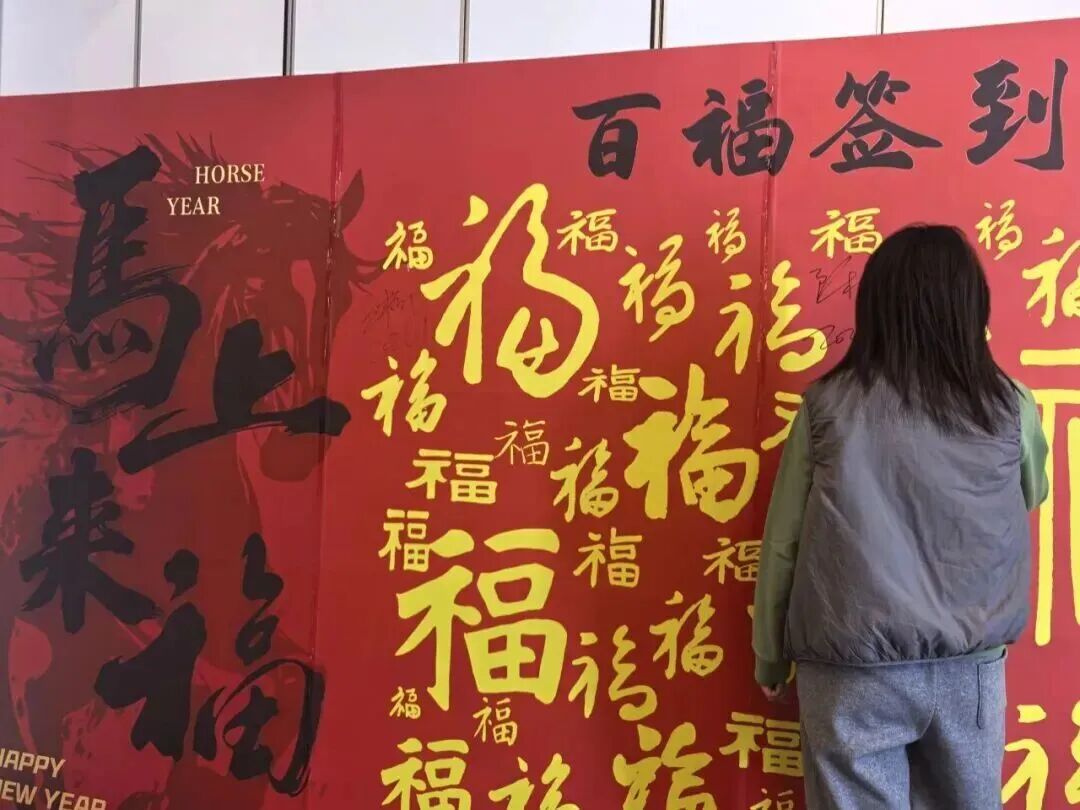 百福签到
HORSE
YEAR
馬
上
来
福
HAPPY
NEW YEAR
福 福 福 福 福 福 福 福
福
福 福 福
福 福 福
福 福 福
福 福 福
福 福
福 福 福 福